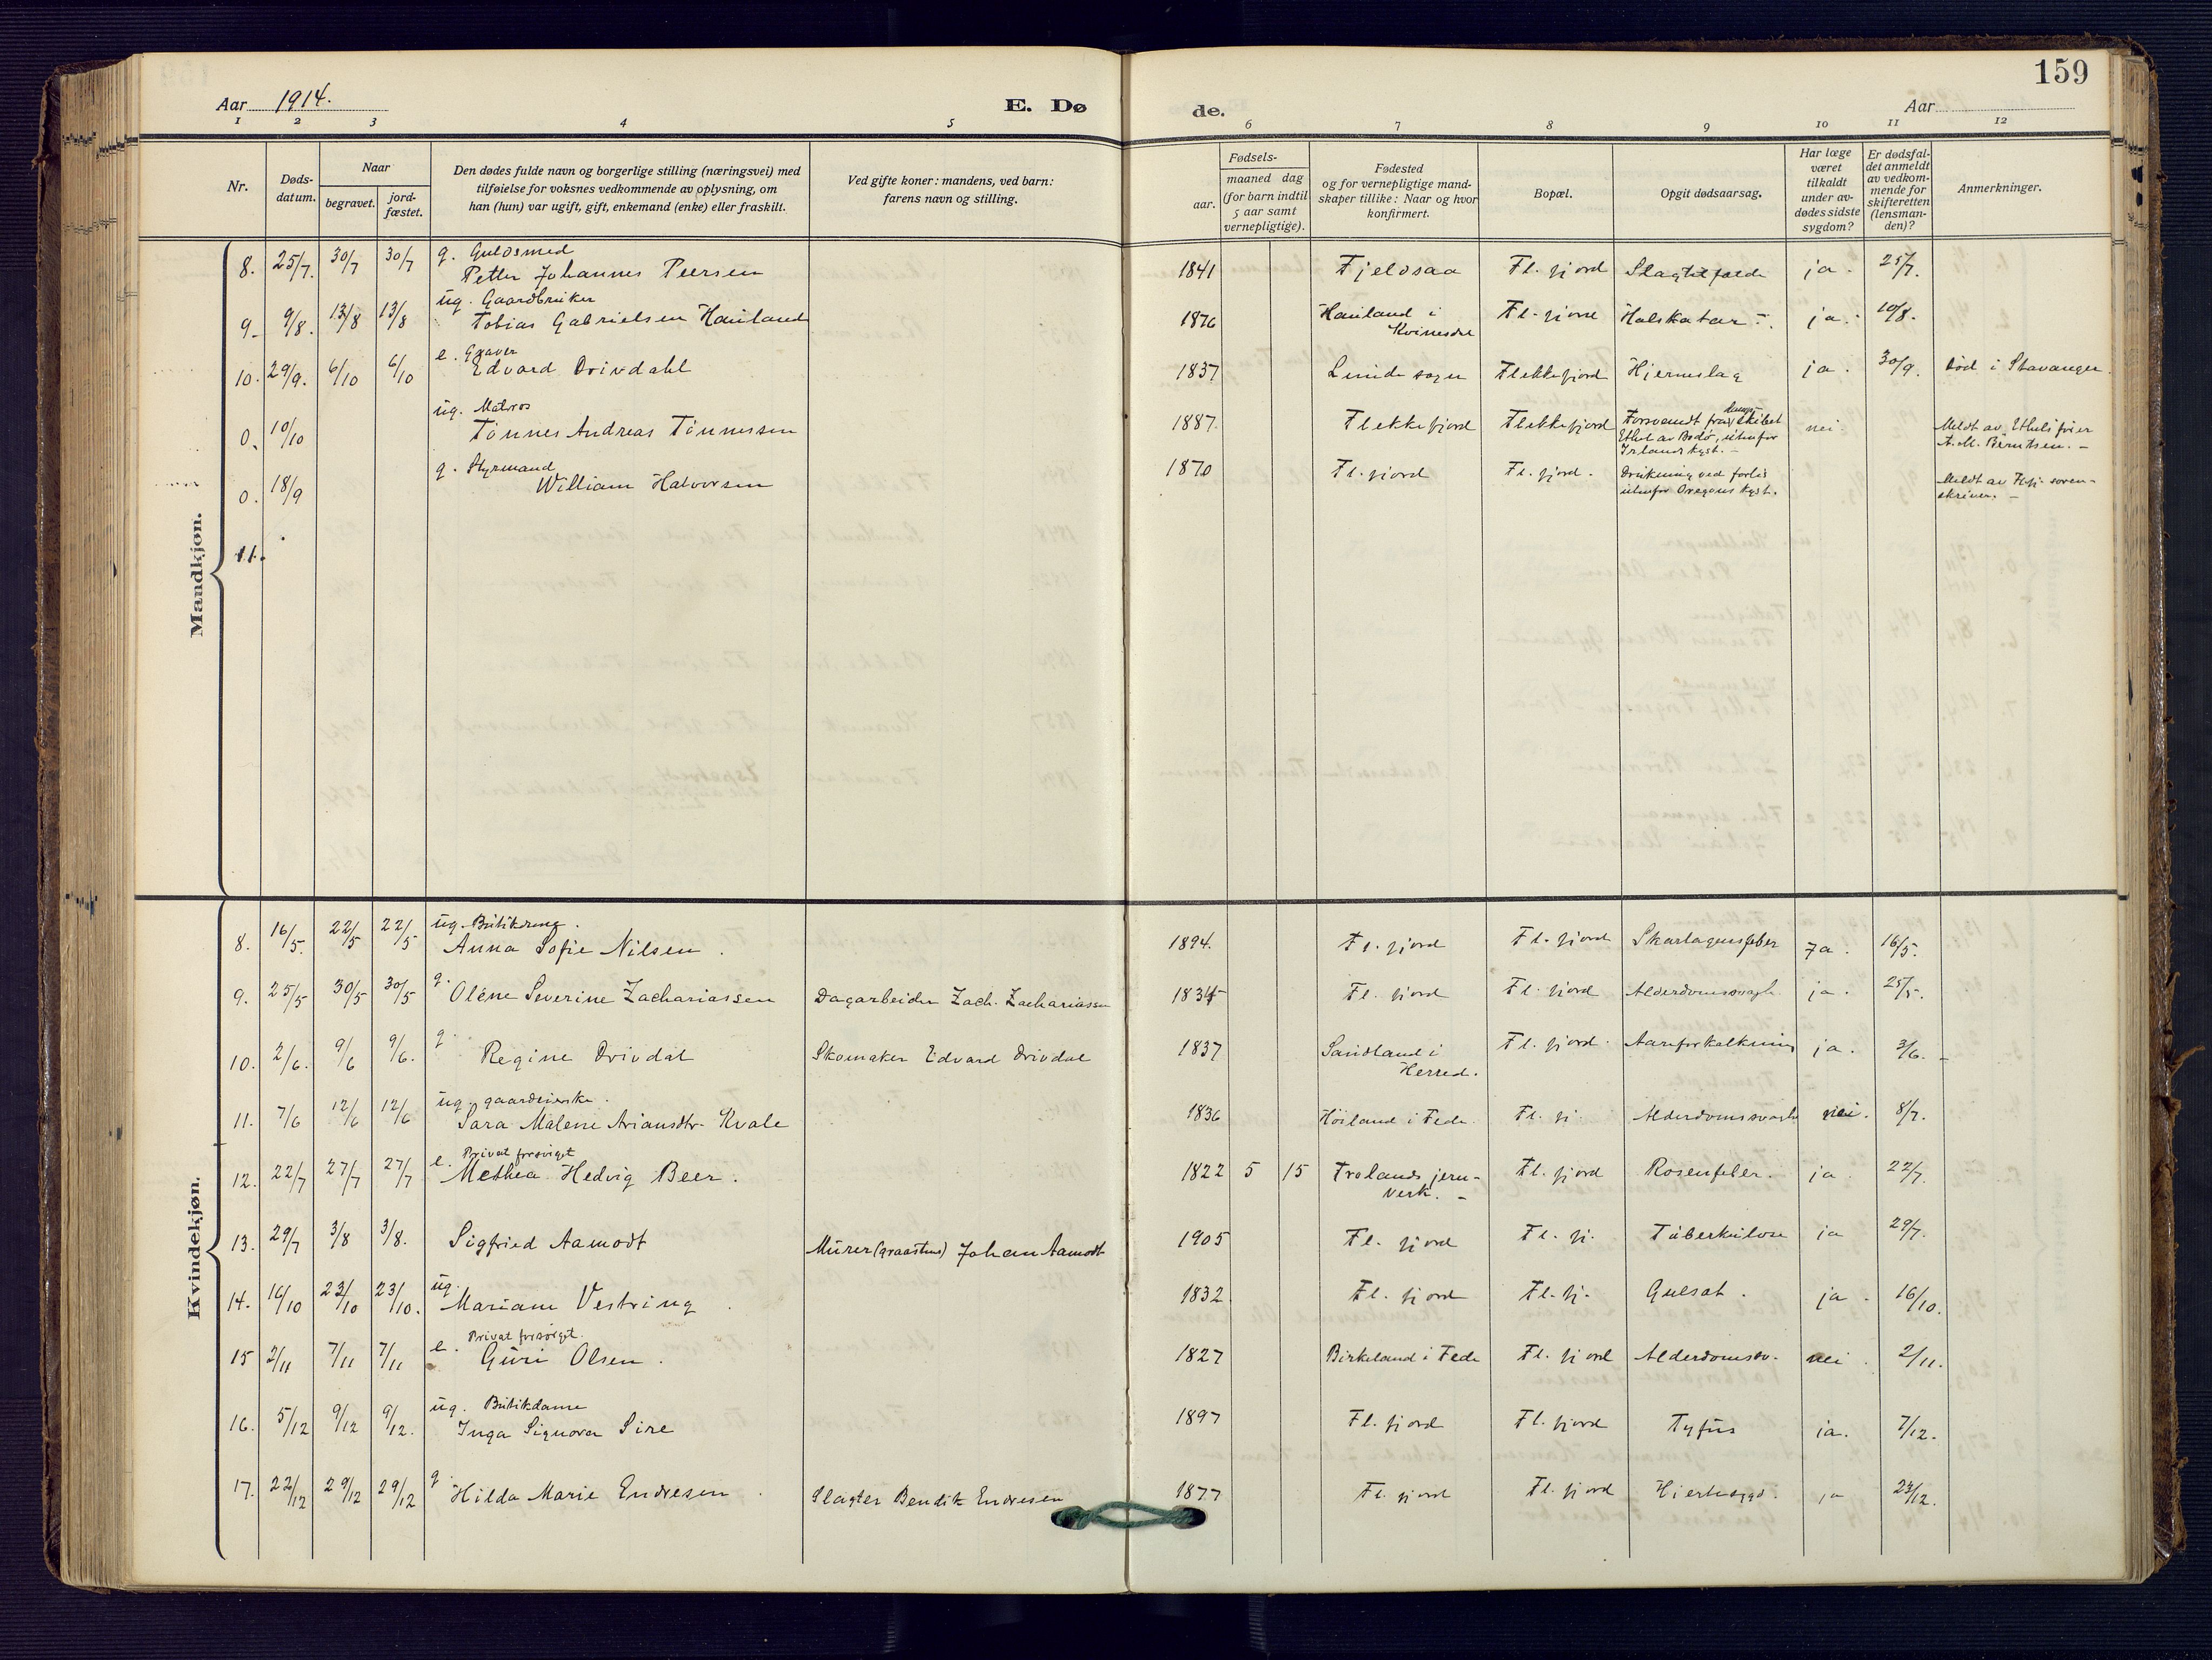 159
Aar 1914.
E. Dø
de.
Aar
1 2 3 4 5 6 7 8 9 10 11 12
Nr.
Døds-
datum.
Naar
begravet.
jord-
fæstet.
Den dødes fulde navn og borgerlige stilling (næringsvei) med
tilføielse for voksnes vedkommende av oplysning, om
han (hun) var ugift, gift, enkemand (enke) eller fraskilt.
Ved gifte koner: mandens, ved barn:
farens navn og stilling.
Fødsels-
aar.
maaned dag
(for barn indtil
5 aar samt
vernepligtige).
Fødested
og for vernepligtige mand-
skaper tillike: Naar og hvor
konfirmert.
Bopæl.
Opgit dødsaarsag.
Har læge
været
tilkaldt
under av-
dødes sidste
sygdom?
Er dødsfal-
det anmeldt
av vedkom-
mende for
skifteretten
(lensman-
den)?
Anmerkninger.
Mandkjøn.
g. Guldsmed
8. 25/7. 30/7 30/7 Petter Johannes Peersen 1841 Fjeldsaa Fl. fjord Slagtilfælde ja. 25/7.
ug. Gaardbruker
9. 9/8. 13/8 13/8 Tobias Gabrielsen Hauland 1876 Hauland i Fl. fjord Halskatar ja. 10/8.
Kvinesdal
e. Graver
10. 29/9. 6/10 6/10 Edvard Drivdahl 1837 Linde sogn Flekkefjord Hjerneslag ja. 30/9. Død i Stavanger.
ug. Matros
0. 10/10 Tönnes Andreas Tönnessen 1887. Flekkefjord Flekkefjord Forsvandt fra damp skibet nei. Meldt av Ethels fører
Ethel av Bodö, utenfor A. M. Berntsen. -
Irlands kyst. -
g. Styrmand
0. 18/9 William Halvorsen 1870 Fl. fjord Fl. fjord. Drukning ved forlis Meldt av Fl.fj. soren-
utenfor Oregons kyst. skriver. -
11.
Kvindekjøn.
ug. Butikdreng.
8. 16/5. 22/5 22/5 Anna Sofie Nilsen. 1894. Fl. fjord Fl. fjord Skarlagensfeber ja. 16/5.
g.
9. 25/5 30/5 30/5 Oléne Severine Zachariassen Dagarbeider Zach. Zachariassen 1834 Fl. fjord Fl. fjord Alderdomssvagh. ja. 25/5.
g.
10. 2/6. 9/6 9/6. Regine Drivdal Skomaker Edvard Drivdal 1837 Sandland i Fl. fjord. Aareforkalkning ja. 3/6. -
Herred.
ug. gaardeierske.
11. 7/6 12/6 12/6 Sara Malene Ariansdtr. Kvale 1836 Höiland i Fede. Fl. fj. Alderdomssvagh. nei. 8/7.
e. Privat forsörget
12. 22/7 27/7 27/7 Methea Hedvig Beer. 1822 5 15 Frolands jern- Fl. fjord Rosenfeber. ja. 22/7.
verk. -
13. 29/7 3/8 3/8. Sigfried Aamodt Murer (graastens) Johan Aamodt 1905 Fl. fjord Fl. fj. Tuberkulose ja 29/7.
ug.
14. 16/10 23/10 23/10. Mariane Vestring. 1832 Fl. fjord Fl. fj. Gulsot. ja. 16/10.
e. Privat forsörget.
15 2/11 7/11 7/11 Guri Olsen. 1827 Birkeland i Fede Fl. fjord Alderdomssv. nei. 2/11.
ug. Butikdame
16. 5/12 9/12 9/12. Inga Signora Sire 1897 Fl. fjord Fl. fjord Tyfus ja. 7/12.
g.
17. 22/12 29/12 29/12 Hilda Marie Endresen. Slagter Bendik Endresen 1877 Fl. fjord Fl. fjord Hjertesygd. ja 23/12.